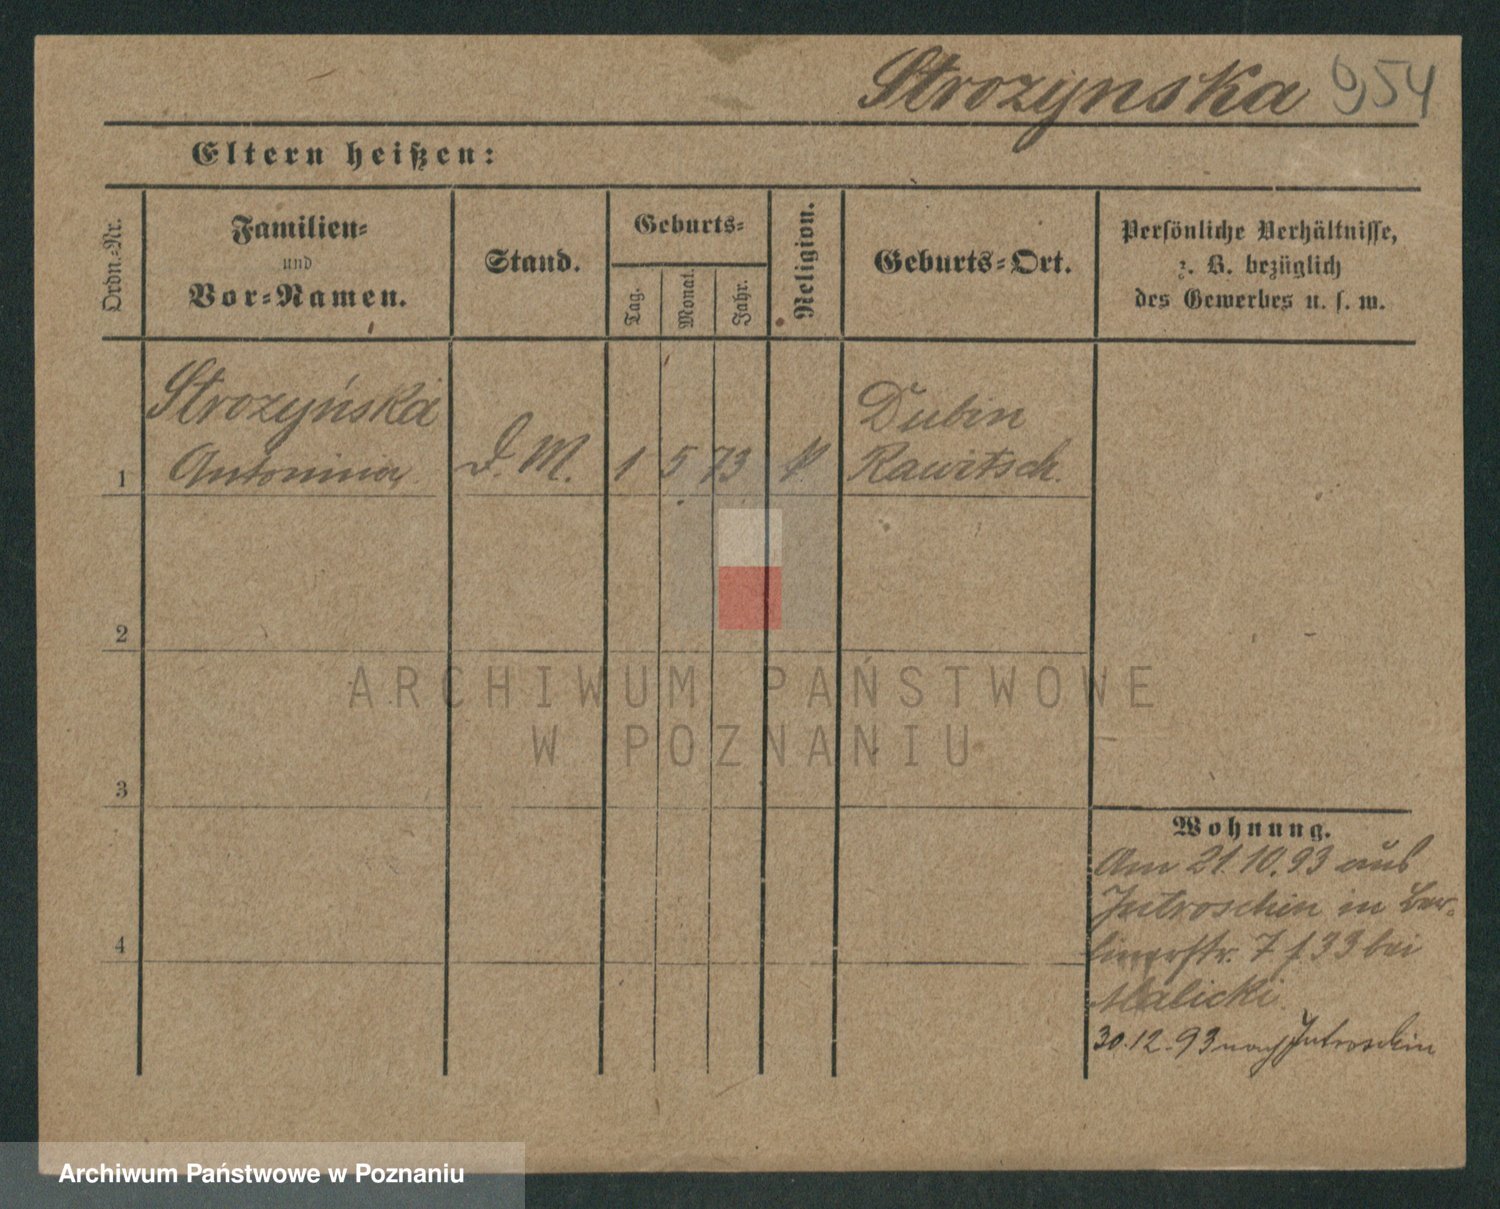 Strozynska 954
Eltern heißen:
Ordn.-Nr.
Familien-
und
Vor-Namen.
Stand.
Geburts-
Tag.
Monat.
Jahr.
Religion.
Geburts-Ort.
Persönliche Verhältnisse,
z. B. bezüglich
des Gewerbes u. s. w.
Strozyńska
Antonina
1
D. M.
1
5
73
k
Dubin
Rawitsch.
2
3
4
Wohnung.
Am 21.10.93 aus
Jutroschin in Ber-
linerstr. 7 f 33 bei
Malicki
30.12.93 nach Jutroschin
ARCHIWUM PAŃSTWOWE
W POZNANIU
Archiwum Państwowe w Poznaniu